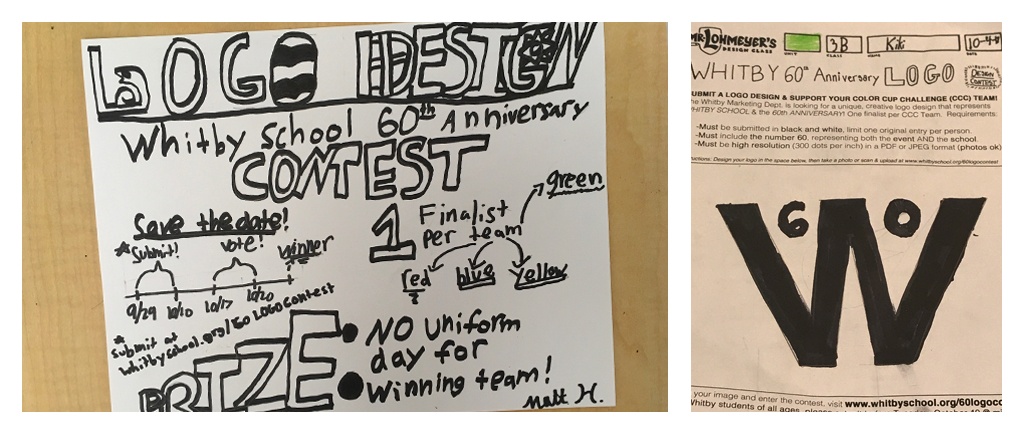 LOGO DESIGN
Whitby School 60th Anniversary
CONTEST
Save the date!
Submit!
vote!
winner
9/29 10/10 10/17 10/20
1 Finalist
per team
green
red
blue
yellow
submit at
whitbyschool.org/60LOGOcontest
PRIZE
NO uniform
day for
winning team!
Matt H.
MR. LOHMEYER'S
DESIGN CLASS
3B
Kiki
10-4-
UNIT CLASS NAME DATE
WHITBY 60th Anniversary LOGO
DESIGN
CONTEST
SUBMIT A LOGO DESIGN & SUPPORT YOUR COLOR CUP CHALLENGE (CCC) TEAM!
he Whitby Marketing Dept. is looking for a unique, creative logo design that represents
WHITBY SCHOOL & the 60th ANNIVERSARY! One finalist per CCC Team. Requirements:
-Must be submitted in black and white, limit one original entry per person.
-Must include the number 60, representing both the event AND the school.
-Must be high resolution (300 dots per inch) in a PDF or JPEG format (photos ok)
uctions: Design your logo in the space below, then take a photo or scan & upload at www.whitbyschool.org/60logocontest
6 0
W
your image and enter the contest, visit www.whitbyschool.org/60logoco
Whitby students of all ages